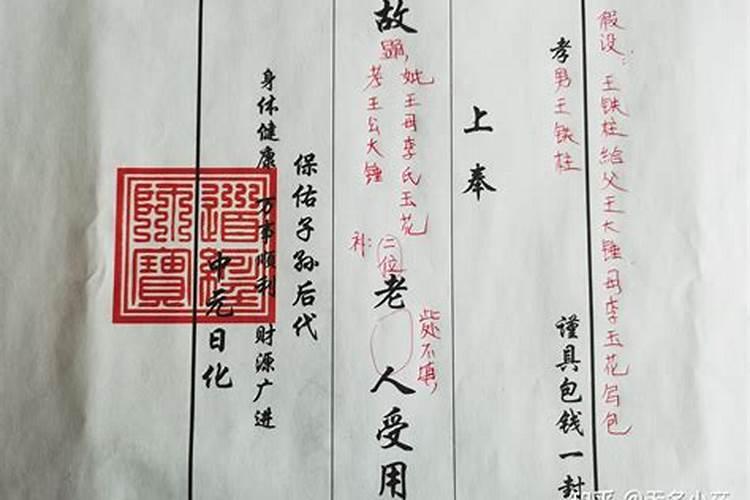 假设：王铁柱给父王大锤母李玉花写包
孝男王铁柱
谨具包钱一封
上奉
故
显,
妣王母李氏玉花
考王公大锤
补：二位
老人受用
此处不填,
保佑子孙后代
身体健康 万事顺利 财源广进
中元日化
道經師寶
知乎